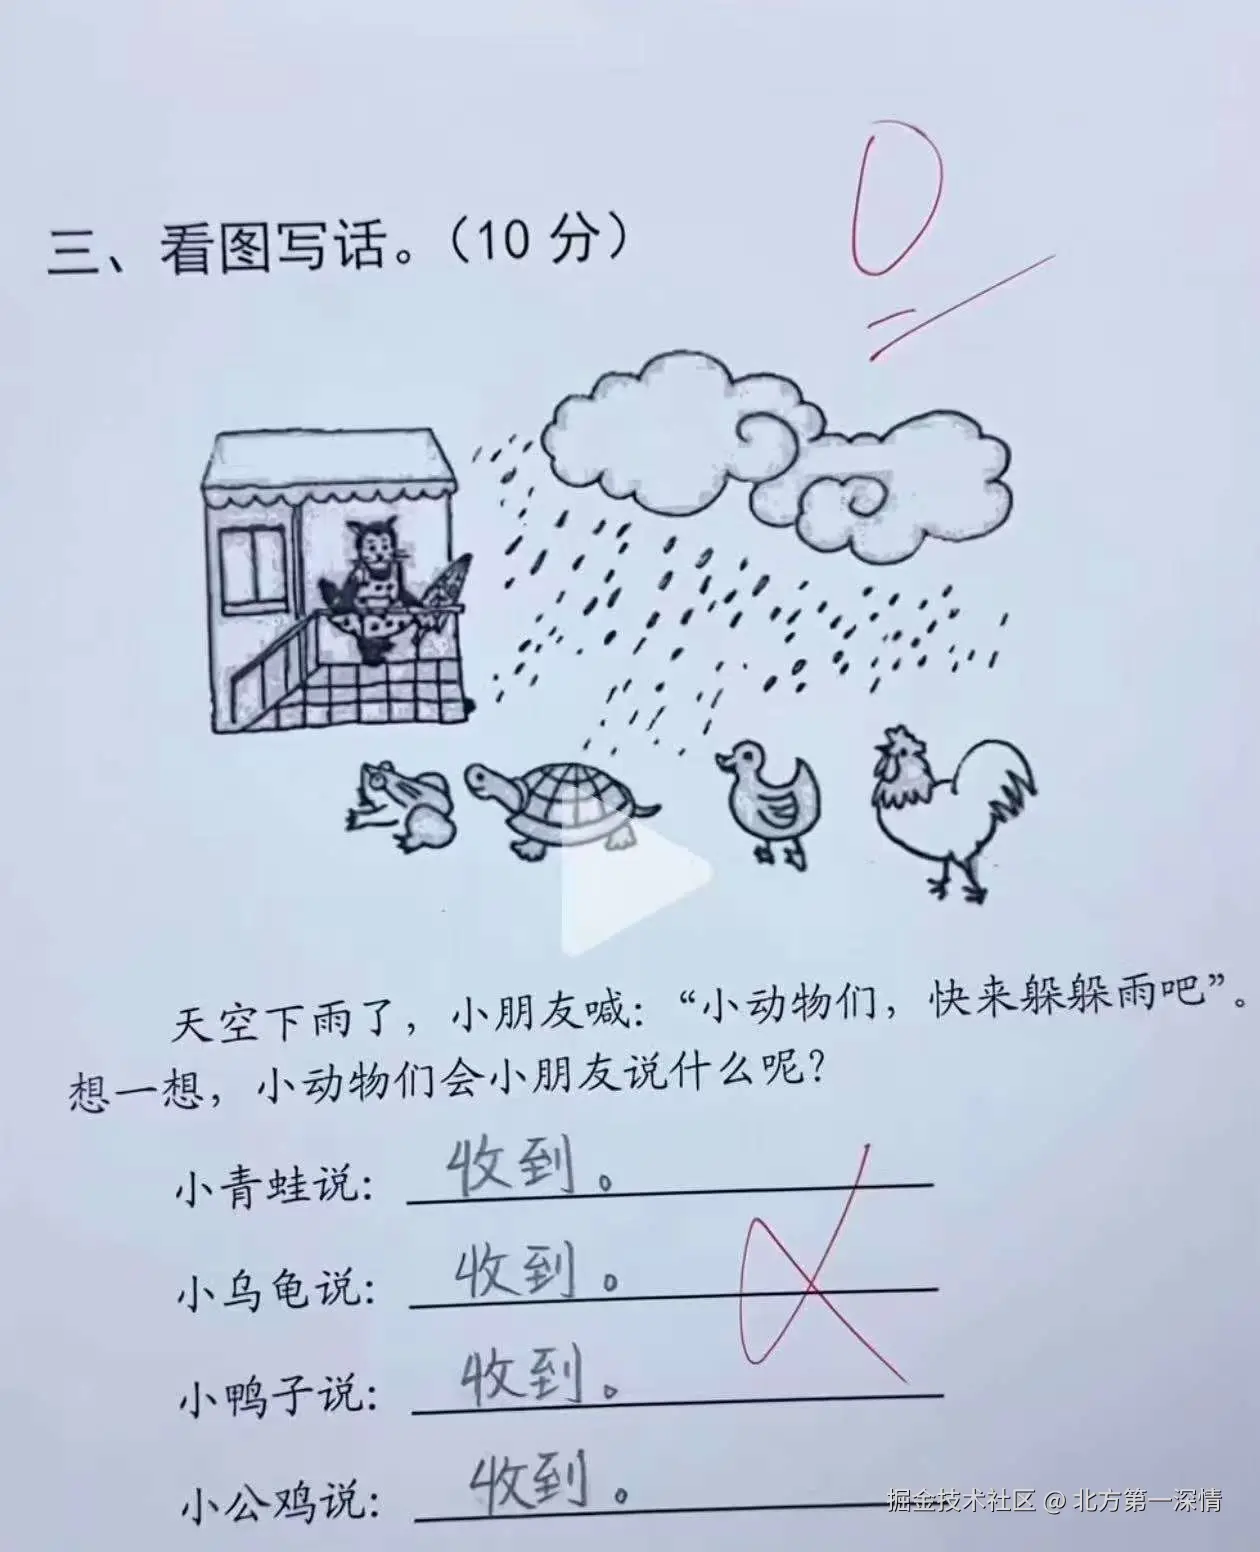 0
三、看图写话。（10 分）
天空下雨了，小朋友喊：“小动物们，快来躲躲雨吧”。
想一想，小动物们会小朋友说什么呢？
小青蛙说：收到。
小乌龟说：收到。
小鸭子说：收到。
小公鸡说：收到。
掘金技术社区 @ 北方第一深情